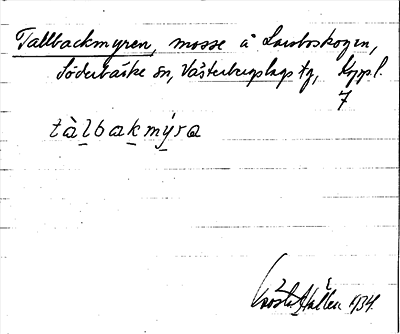 Tallbackmyren, mosse å Larsboskogen,
Söderbärke sn, Västerbergslags tg, Kppl.
7
tàlbakmýra
Gösta Hallén 1934.